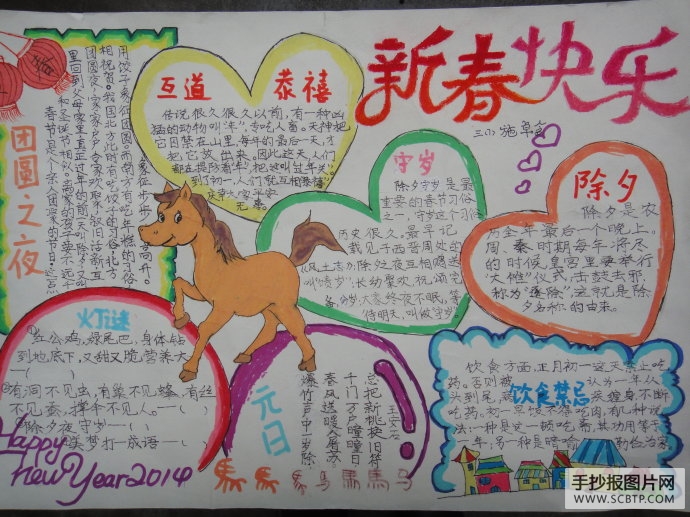 新春快乐
三(1) 施卓
互道恭禧
传说很久很久以前,有一种凶
猛的动物叫"年",专吃人畜。天神把
它囚禁在山里,每年的最后一天,才
把它放出来。因此这天人们
都在提防着年,把这叫过年关。
到了初一,人们就互相恭禧
无恙。
守岁
除夕守岁是最
重要的春节习俗
之一,守岁这个习俗
历史很久。最早记
载见于西晋周处的
《风土志》:除夕之夜互相赠送
叫"馈岁"。长幼聚欢,祝颂完
备。分岁,大家终夜不眠,等
待明天,叫做守岁
除夕
除夕是农
历全年最后一个晚上。
周、秦时期每年将尽
的时候,皇宫里要举行
"大傩"仪式,击鼓去邪,
称为"逐除",这就是除
夕名称的由来。
团圆之夜
春节是个亲人团聚的节日,这点
和圣诞节相似。离家的孩子要不远千
里回到父母家里。真正过年的前一天叫除夕,又叫
团圆夜。家家户户
相祝贺。我国北方此时有吃饺子的习俗
灯谜
红公鸡,绿尾巴,身体钻
到地底下,又甜又脆营养大
—( )
有洞不见虫,有巢不见蜂,有丝
不见蚕,撑伞不见人。—( )
除夕夜守岁—( )
美梦打一成语—( )
Happy
New Year 2014
元日
王安石
爆竹声中一岁除
春风送暖入屠苏
千门万户曈曈日
总把新桃换旧符
饮食禁忌
饮食方面,正月初一这天禁止吃
药。否则被认为一年从
头到尾,疾缠身,不断
吃药。初一早饭不得吃肉。有几种说
法:一种是这一顿吃斋,其功用等于
年,另一种是
手抄报图片网
WWW.SCBTP.COM